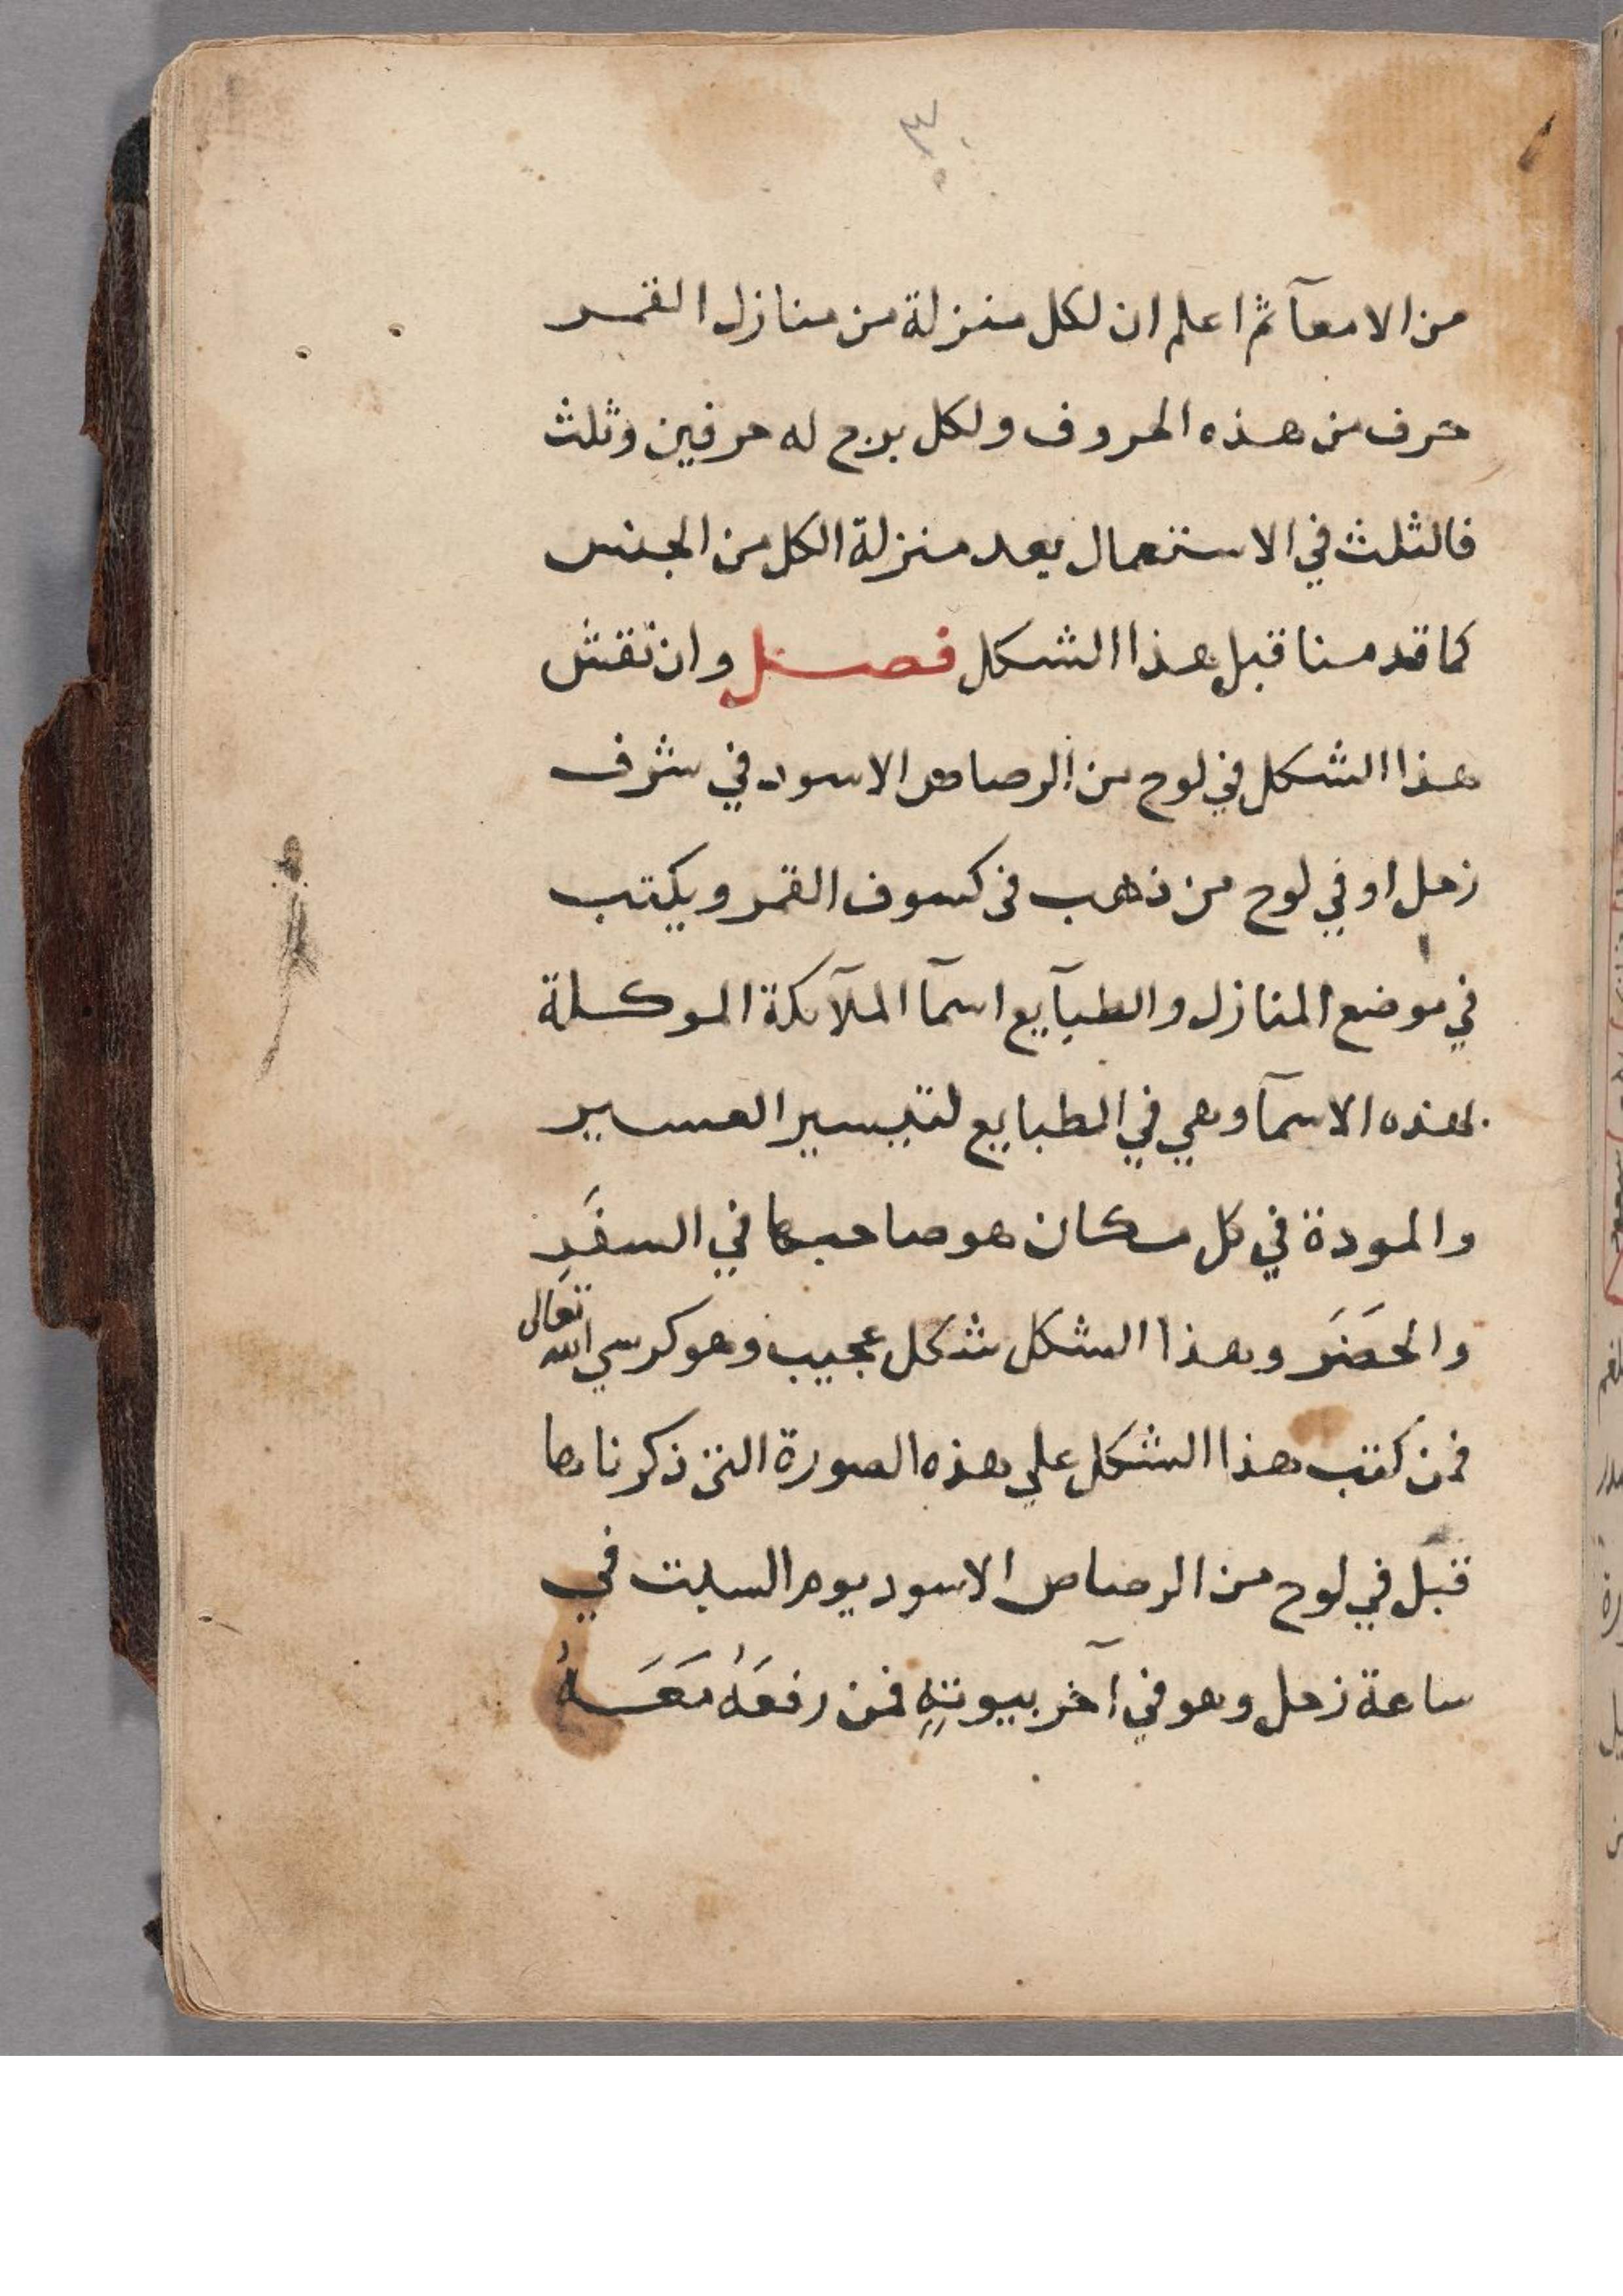 ٣٠
من الامعآ ثم اعلم ان لكل منزلة من منازل القمر
حرف من هذه الحروف ولكل برج له حرفين وثلث
فالثلث في الاستعمال يعد منزلة الكل من الجنس
كما قدمنا قبل هذا الشكل فصل وان نقش
هذا الشكل في لوح من الرصاص الاسود في شرف
زحل او في لوح من ذهب في كسوف القمر ويكتب
في موضع المنازل والطبآيع اسمآ الملآئكة الموكلة
بهذه الاسمآ وهي في الطبايع لتيسير العسير
والمودة في كل مكان هو صاحبها في السفَرِ
والحضَر وهذا الشكل شكل عجيب وهو كرسي الله تعالى
فمن كتب هذا الشكل على هذه الصورة التي ذكرناها
قبل في لوح من الرصاص الاسود يوم السبت في
ساعة زحل وهو في آخر بيوتهِ فمن رفعَهُ مَعَهُ